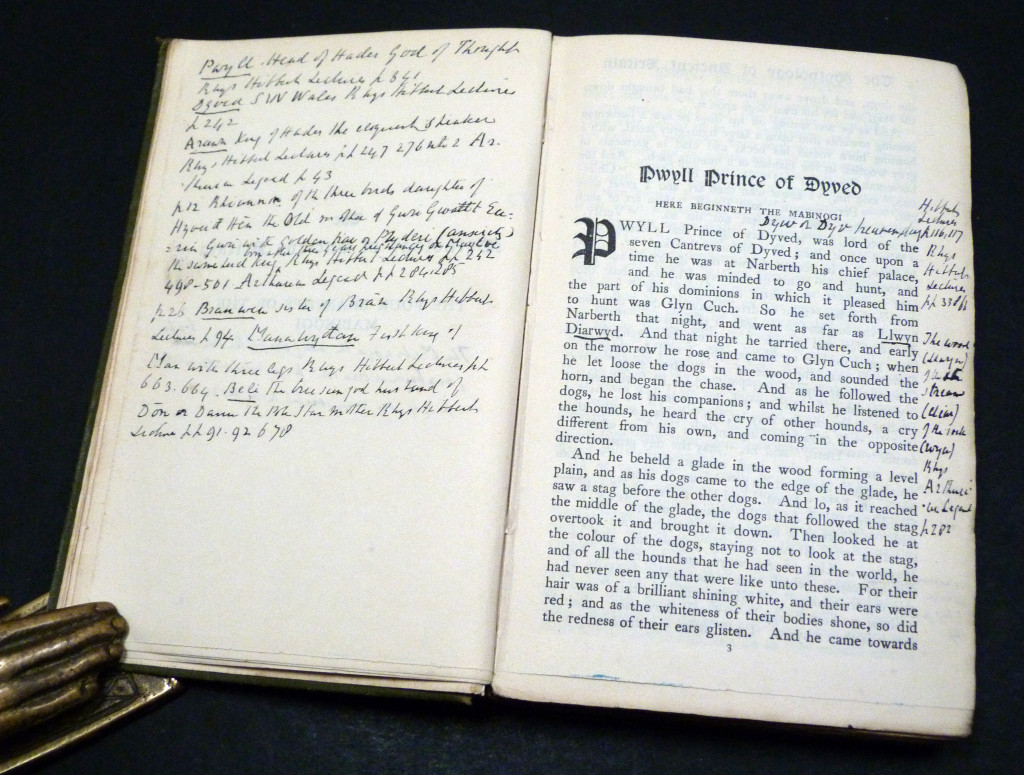 Pwyll. Head of Hades God of Thought
Rhys Hibbert Lectures p 341
Dyved SW Wales Rhys Hibbert Lectures
p 242
Arawn King of Hades the eloquent speaker
Rhys Hibbert Lectures pp 247 276 Ar-
thurian Legend p 43
p 12 Rhiannon of the three birds daughter of
Heveydd Hên the Old mother of Gwri Gwallt
Gwri with golden hair or Pryderi (anxiety)
the second king Rhys Hibbert Lectures pp 242
498-501 Arthurian Legend pp 284, 285
p 26 Branwen sister of Brân Rhys Hibbert
Lectures p 94. Manawyddan king of
Man with three legs Rhys Hibbert Lectures pp
663. 664. Beli the sun god husband of
Dôn or Danu the mother Rhys Hibbert
Lectures pp 91-92 678
Pwyll Prince of Dyved
HERE BEGINNETH THE MABINOGI
PWYLL Prince of Dyved, was lord of the
seven Cantrevs of Dyved; and once upon a
time he was at Narberth his chief palace,
and he was minded to go and hunt, and
the part of his dominions in which it pleased him
to hunt was Glyn Cuch. So he set forth from
Narberth that night, and went as far as Llwyn
Diarwyd. And that night he tarried there, and early
on the morrow he rose and came to Glyn Cuch; when
he let loose the dogs in the wood, and sounded the
horn, and began the chase. And as he followed the
dogs, he lost his companions; and whilst he listened to
the hounds, he heard the cry of other hounds, a cry
different from his own, and coming in the opposite
direction.
And he beheld a glade in the wood forming a level
plain, and as his dogs came to the edge of the glade, he
saw a stag before the other dogs. And lo, as it reached
the middle of the glade, the dogs that followed the stag
overtook it and brought it down. Then looked he at
the colour of the dogs, staying not to look at the stag,
and of all the hounds that he had seen in the world, he
had never seen any that were like unto these. For their
hair was of a brilliant shining white, and their ears were
red; and as the whiteness of their bodies shone, so did
the redness of their ears glisten. And he came towards
3
Hibbert
Lectures
pp 116, 117
Rhys
Hibbert
Lectures
The wood
of the
stream
of the
Rhys
Arthuri-
an Legend
p 282